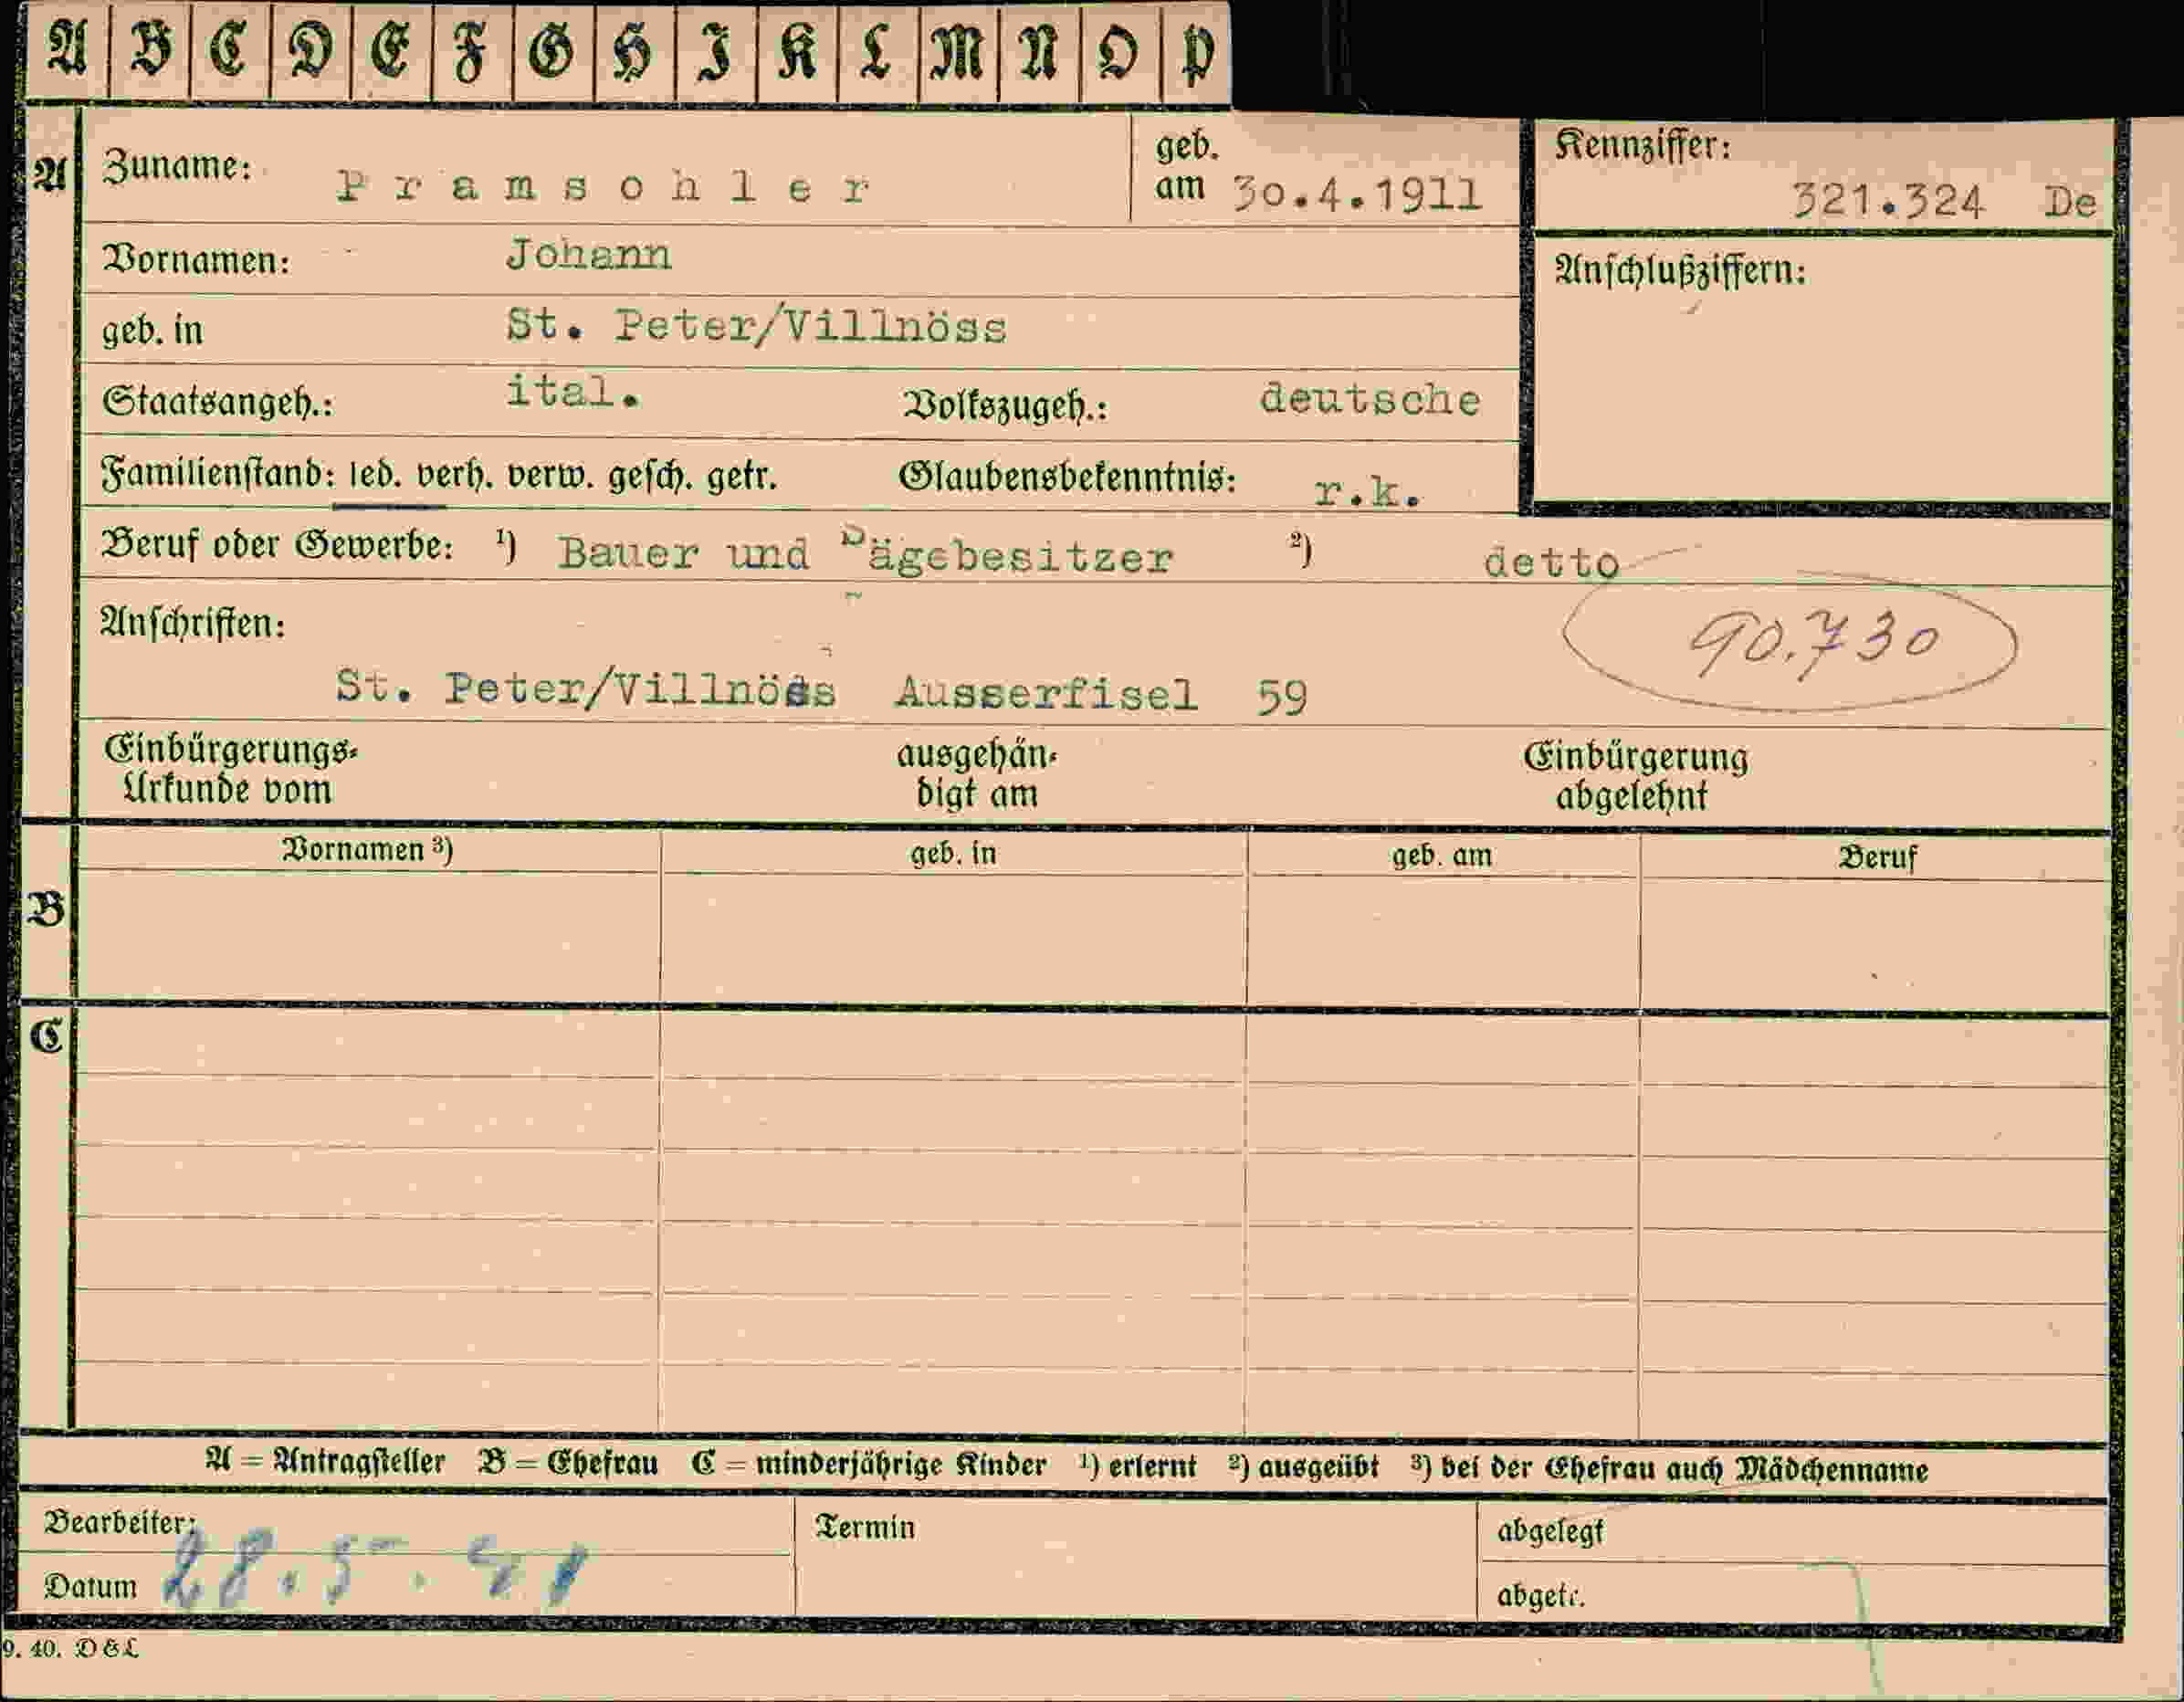 A B C D E F G H I K L M N O P
A Zuname: Pramsohler geb. am 30.4.1911 Kennziffer: 321.324 De
Vornamen: Johann Anschlußziffern:
geb. in St. Peter/Villnöss
Staatsangeh.: ital. Volkszugeh.: deutsche
Familienstand: led. verh. verw. gesch. getr. Glaubensbekenntnis: r.k.
Beruf oder Gewerbe: ¹) Bauer und ägebesitzer ²) detto
Anschriften: 90.730
St. Peter/Villnöss Ausserfisel 59
Einbürgerungs- ausgehän- Einbürgerung
Urkunde vom digt am abgelehnt
Vornamen ³) geb. in geb. am Beruf
B
C
A = Antragsteller B = Ehefrau C = minderjährige Kinder ¹) erlernt ²) ausgeübt ³) bei der Ehefrau auch Mädchenname
Bearbeiter: Termin abgelegt
Datum 28.5.41 abgetr.
9. 40. D&L